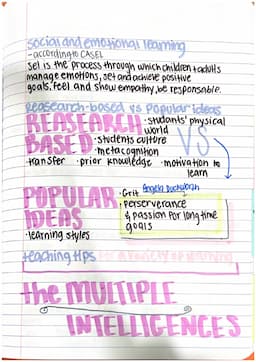 social and emotional learning
- according to CASEL
Sel is the process through which children & adults
manage emotions, set and achieve positive
goals, feel and show empathy be responsable.
reasearch-based vs Popular ideas
REASEARCH · students' physical
world
BASED · students culture
· metacognition
VS
transfer · prior knowledge · motivation to
learn
POPULAR · Grit Angela Duckworth
IDEAS · perserverance
& passion for long time
goals
· learning styles
teaching tips for a variety of learning
the MULTIPLE
INTELLIGENCES